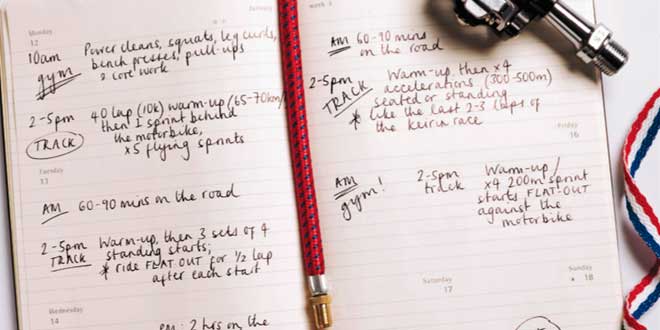 Monday
January
12
10am Power cleans, squats, leg curls,
gym bench presses, pull-ups
& core work
2-5pm 40 lap (10k) warm-up (65-70km/
TRACK then 1 sprint behind
the motorbike,
x5 flying sprints
Tuesday
13
AM 60-90 mins on the road
2-5pm Warm-up, then 3 sets of 4
TRACK standing starts;
* ride FLAT OUT for 1/2 lap
after each start
Wednesday
14
PM: 2 hrs on the
week 3
AM 60-90 mins
on the road
2-5pm Warm-up, then x4
TRACK accelerations (300-500m)
seated or standing
* like the last 2-3 laps of
the keirin race
Friday
16
AM gym!
2-5pm Warm-up/
track x4 200m sprint
starts FLAT OUT
against the
motorbike
Saturday
17
Sunday
* 18